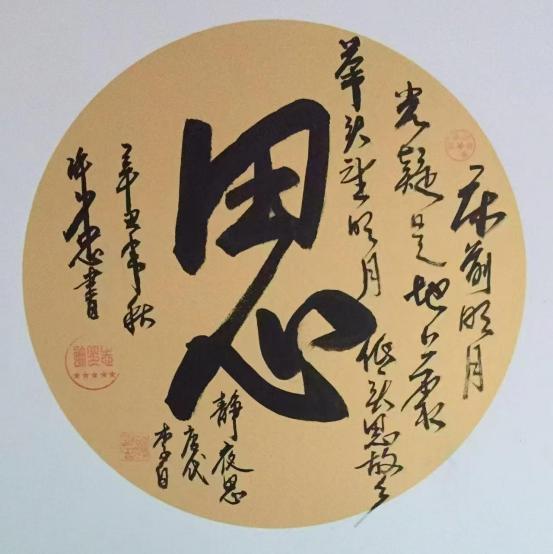 床前明月
光疑是地上霜
举头望明月
低头思故乡
思
静夜思
唐代
李白
辛丑年秋
书